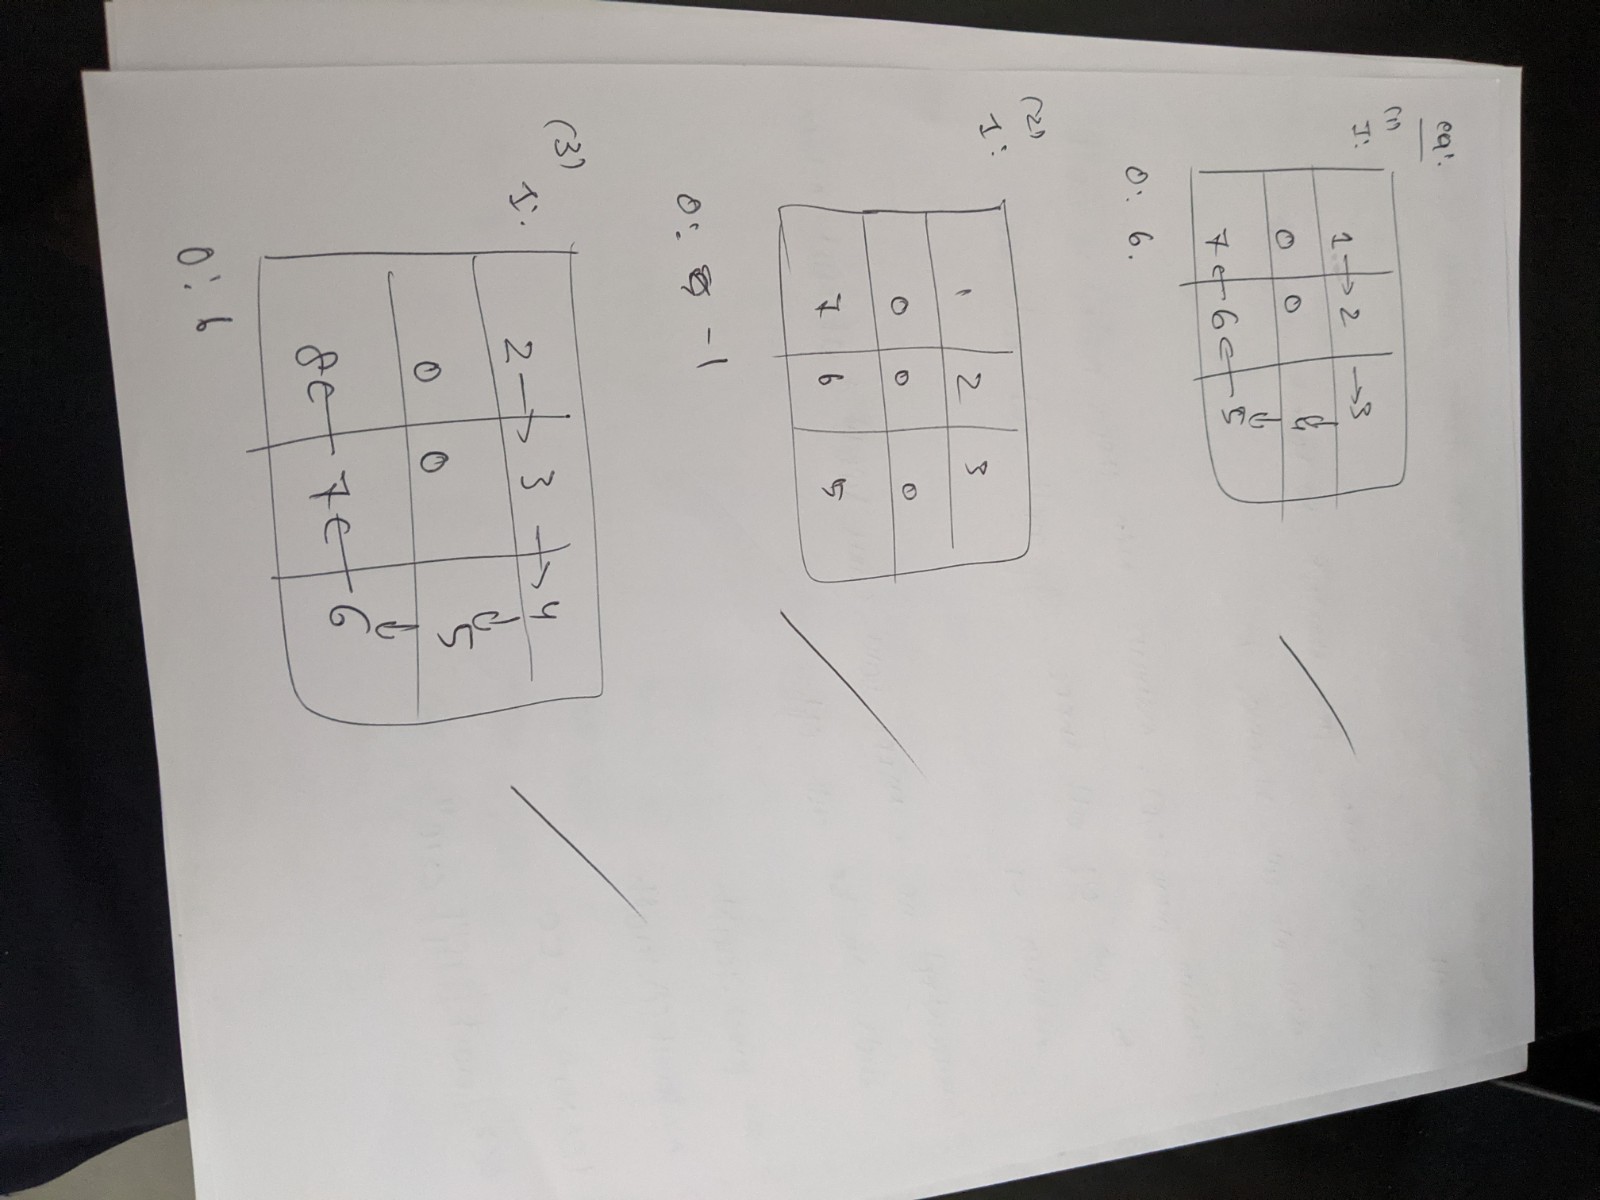 eg:
(1)
I:
1 → 2 → 3
0 0 4
7 ← 6 ← 5
O: 6.
(2)
I:
1 2 3
0 0 0
7 6 5
O: -1
(3)
I:
2 → 3 → 4
0 0 5
8 ← 7 ← 6
O: 6